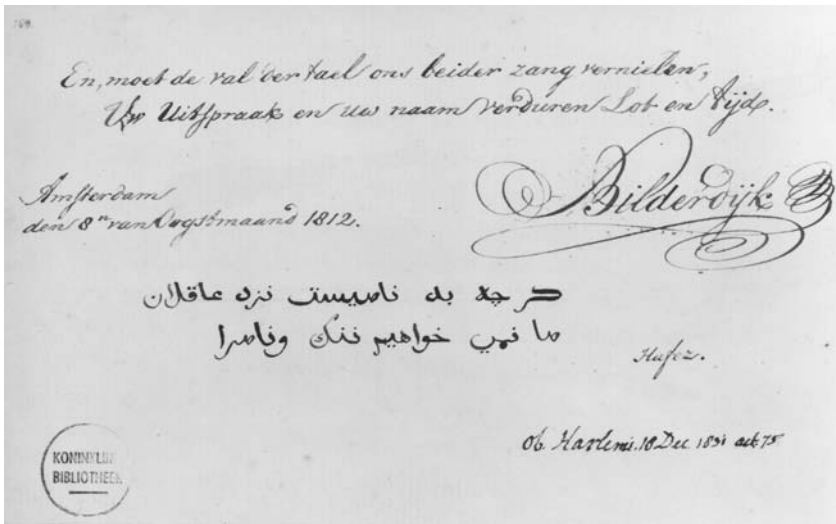 169.
En, moet de val der tael ons beider zang vernielen,
Uw Uitspraak en uw naam verduren Lot en tijd.
Bilderdijk
Amsterdam
den 8n van Oogstmaand 1812.
گرچه بد نامیست نزد عاقلان
ما نمی خواهیم ننگ ونامرا
Hafez.
ob. Harlemi. 18 Dec 1831 aet. 75
KONINKLIJKE
BIBLIOTHEEK